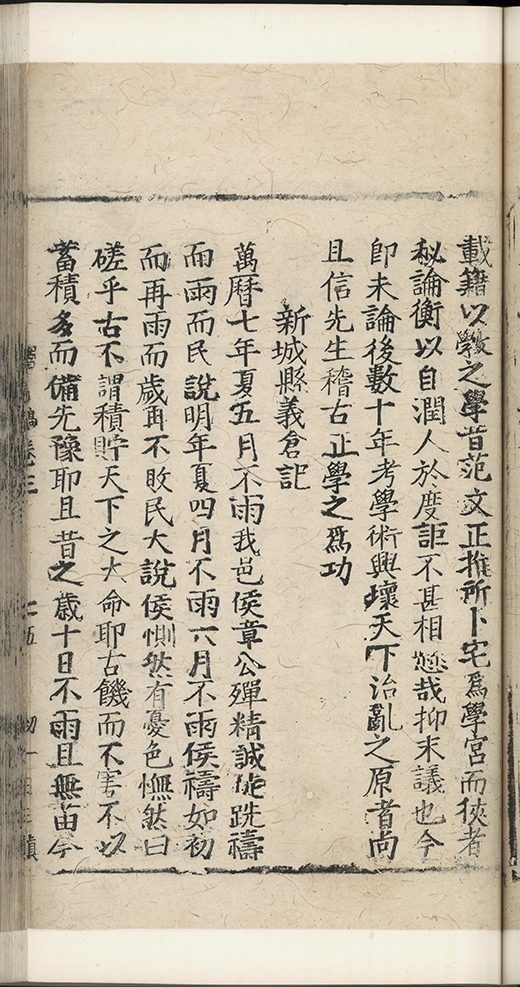 載籍以斅之學昔范文正推所卜宅爲學宮而狹者
秘論衡以自潤人於度詎不甚相懸哉抑末議也今
卽未論後數十年考學術興壞天下治亂之原者尚
且信先生稽古正學之爲功
新城縣義倉記
萬曆七年夏五月不雨我邑侯章公殫精誠徒跣禱
而雨而民說明年夏四月不雨六月不雨侯禱如初
而再雨而歲再不敗民大說侯惻然有憂色憮然曰
磋乎古不謂積貯天下之大命耶古饑而不害不以
蓄積多而備先豫耶且昔之歲十日不雨且無苗今
稿卷三
七五